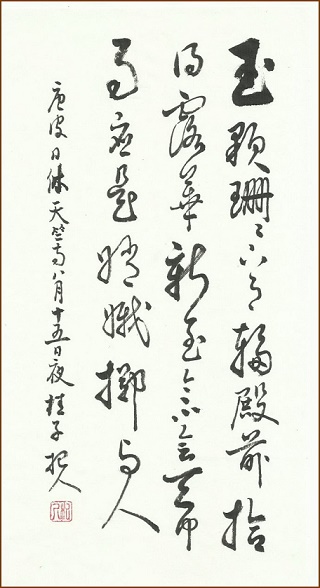 玉顆珊〻下月輪殿前拾
得露華新至今不會天中
事應是嫦娥擲与人
唐皮日休天竺寺八月十五日夜桂子